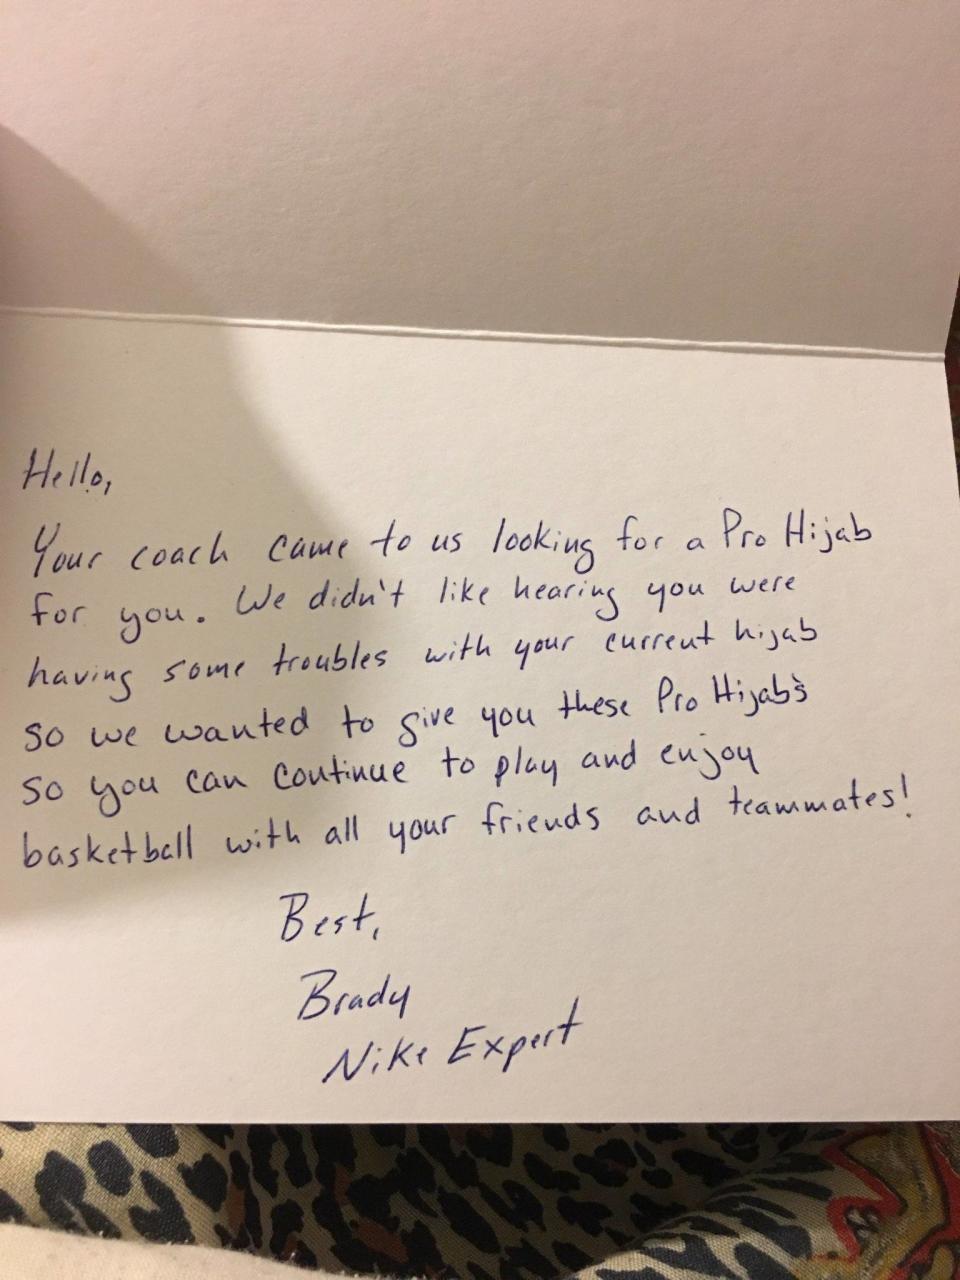 Hello,
Your coach came to us looking for a Pro Hijab
for you. We didn't like hearing you were
having some troubles with your current hijab
so we wanted to give you these Pro Hijab's
so you can continue to play and enjoy
basketball with all your friends and teammates!
Best,
Brady
Nike Expert